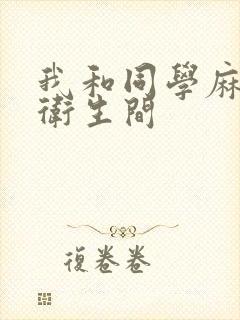 我和同學麻
衛生間
復卷卷